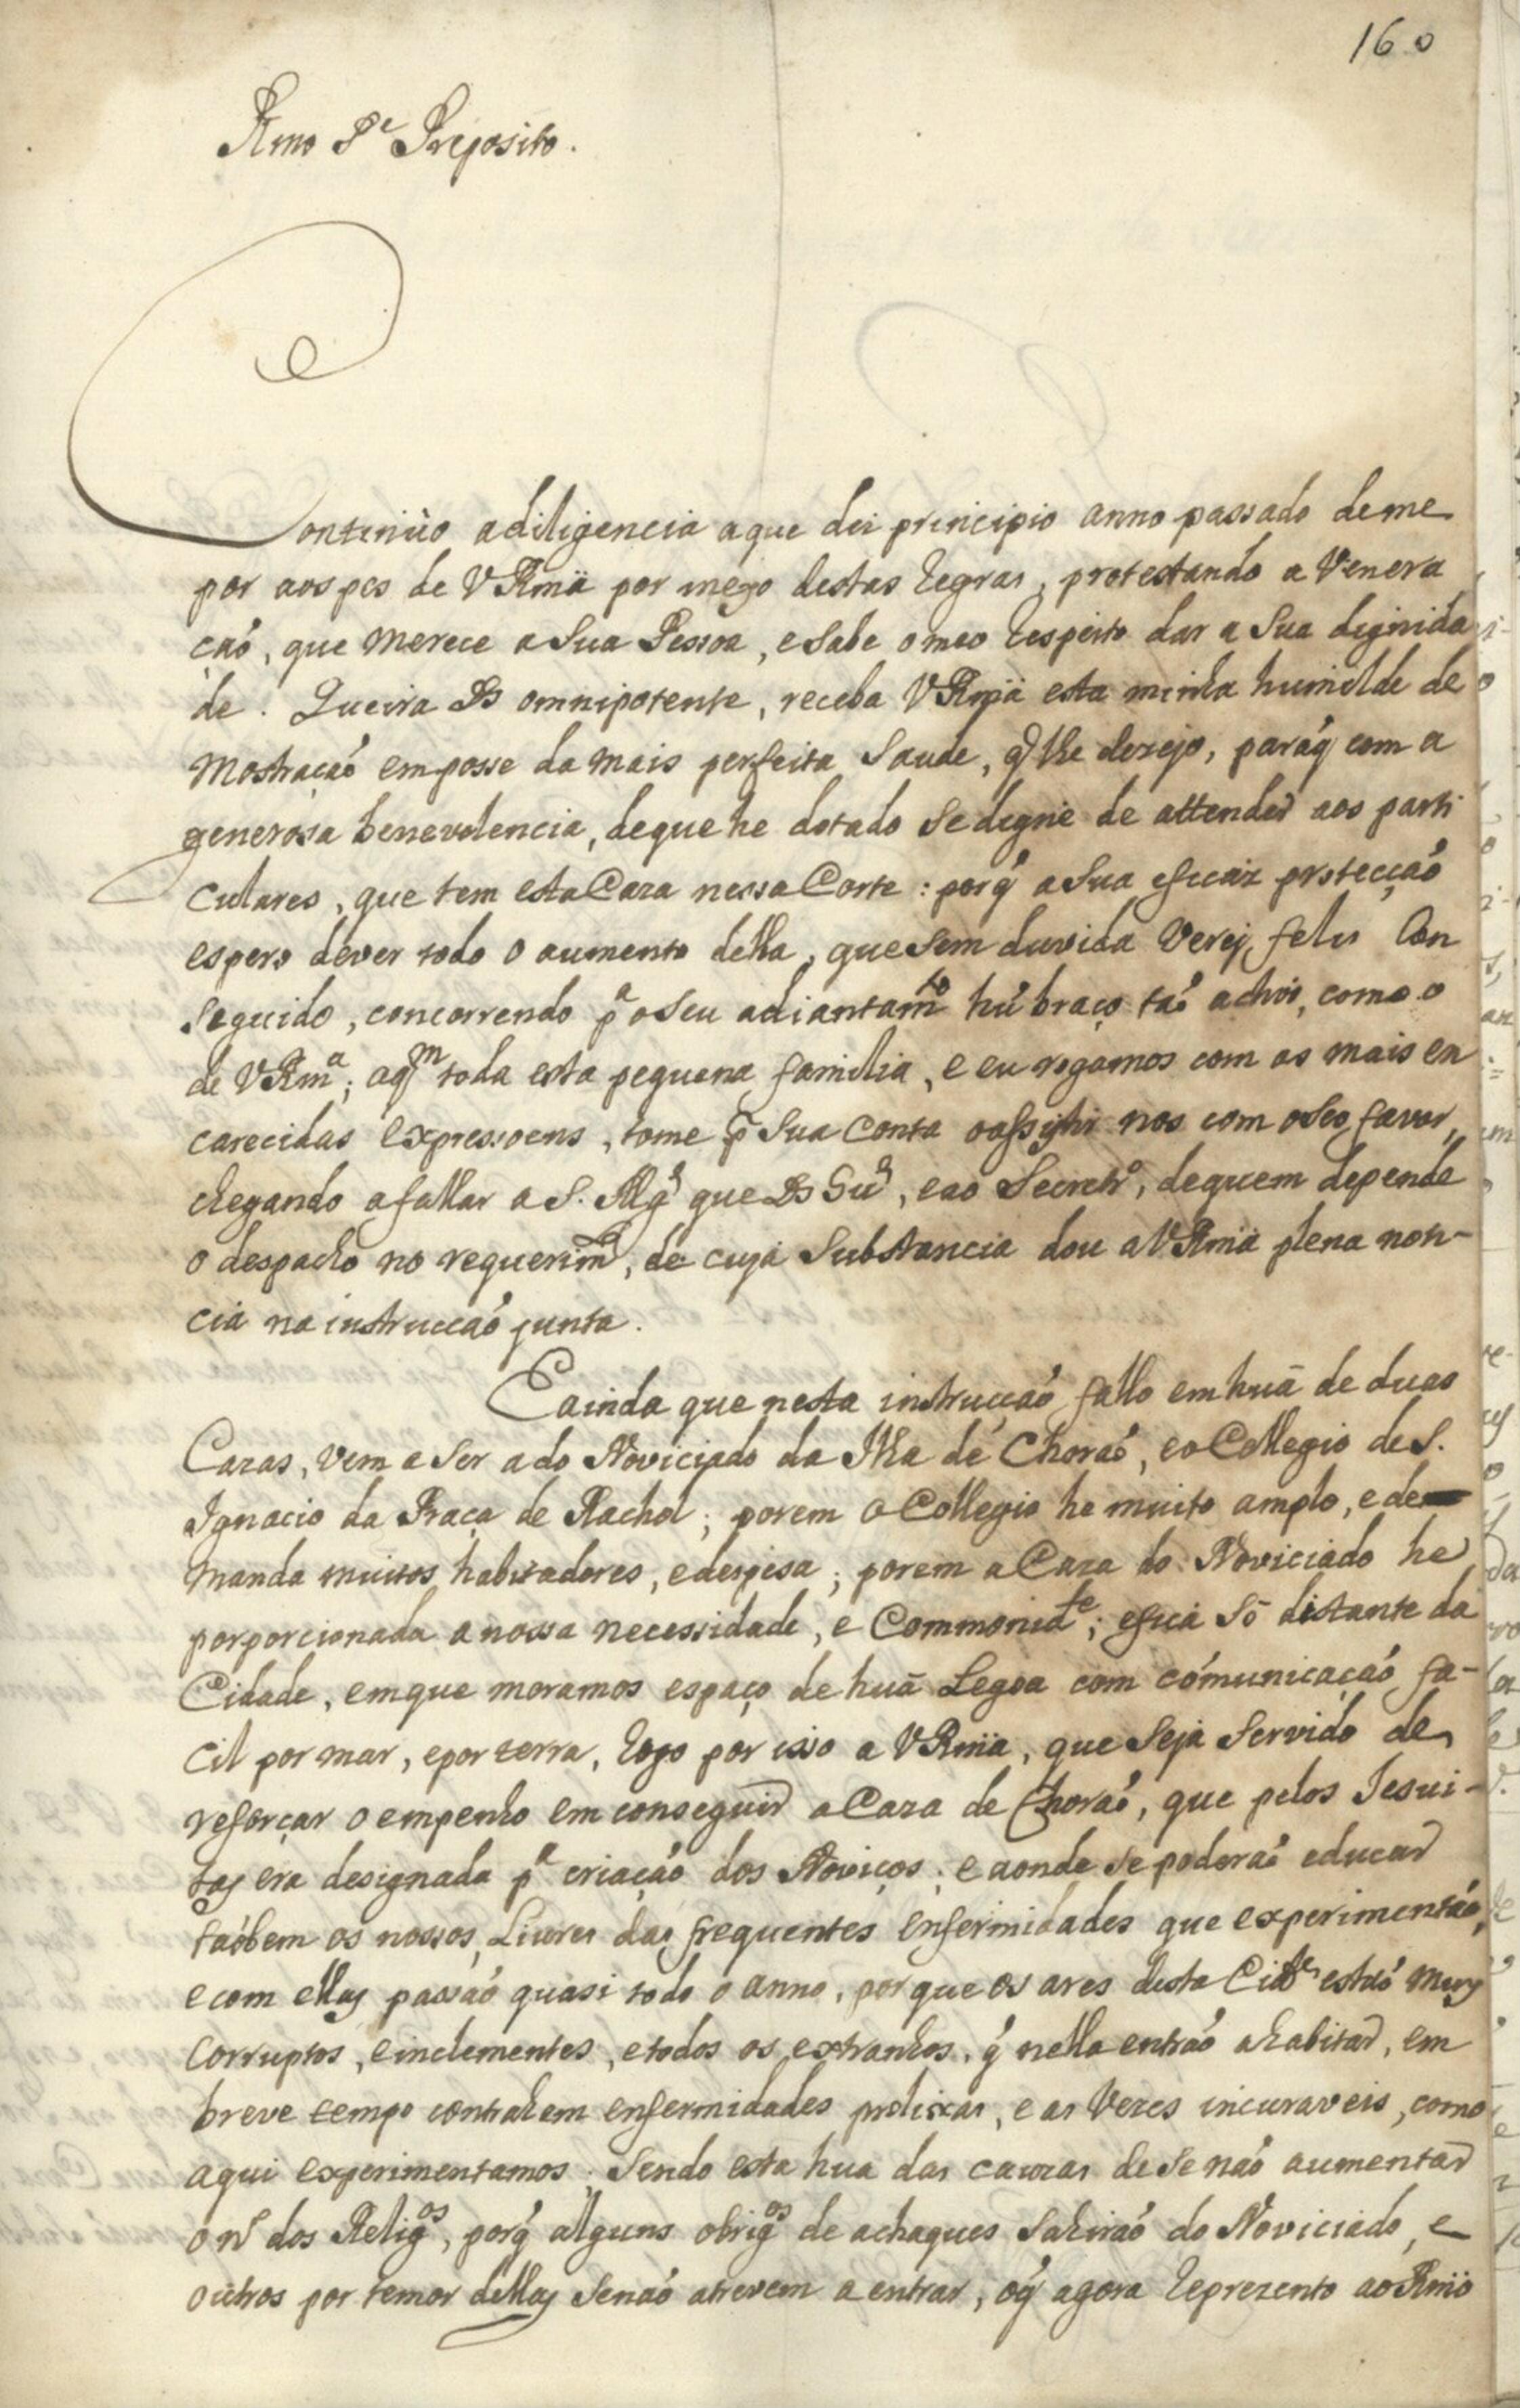 160
Rmo Pe Preposito.
Continùo adiligencia aque dei principio anno passado deme
por aos pes de V Rmã por meyo destas regras, protestando a Venera
çaó, que merece a Sua Pessoa, e Sabe o meo respeito dar a Sua dignida
de. Queira Ds omnipotente, receba V Rmã esta minha humilde de
mostraçaó em posse da mais perfeita Saude, q̃ lhe dezejo, paraq́ com a
generosa benevolencia, deque he dotado Se digne de attender aos parti
culares, que tem esta Caza nessa Corte: porq́ a Sua eficáz protecçaó
espero dever todo o aumento della, que Sem duvida Verej felis Con
Seguido, concorrendo pa o Seu adiantamto hú braço taó activo, como o
de V Rma; aqm toda esta pequena familia, e eu rogamos com as mais en
carecidas expressoens, tome pr Sua Conta o assistir nos com o Seo favor,
chegando a fallar a S. Mge que Ds Gue, e ao Secretro, dequem depende
o despacho no requerimto, de cuja Substancia dou a V Rmã plena noti-
cia na instrucçaó junta.
E ainda que nesta instrucçaó fallo em huã de duas
Cazas, vem a Ser a do Noviciado da Ilha de Choraó, e o Collegio de S.
Ignacio da Praça de Rachol; porem o Collegio he muito amplo, e de
manda muitos habitadores, e despesa; porem a Caza do Noviciado he
porporcionada a nossa necessidade, e Commonide; e fica Só distante da
Cidade, em que moramos espaço de huã Legoa com comunicaçaó fa-
cil por mar, e por terra, rogo por isso a V Rmã, que Seja Servido de
reforçar o empenho em conseguir a Caza de Choraó, que pelos Jesui-
tas era designada pa criaçaó dos Noviços; e aonde se poderaó educar
taóbem os nossos Livres das frequentes enfermidades que experimentaó,
e com ellas passaó quasi todo o anno, por que os ares desta Cide estaó muy
Corruptos, e inclementes, e todos os extranhos, q́ nella entraó a habitar, em
breve tempo contrahem enfermidades prolixas, e as Vezes incuraveis, como
aqui experimentamos; Sendo esta hua das cauzas de Se naó aumentar
o no dos Religos, porq́ alguns obrigos de achaques Sahiraó do Noviciado, e
outros por temor dellas Senaó atrevem a entrar, oq́ agora reprezento ao Rmo